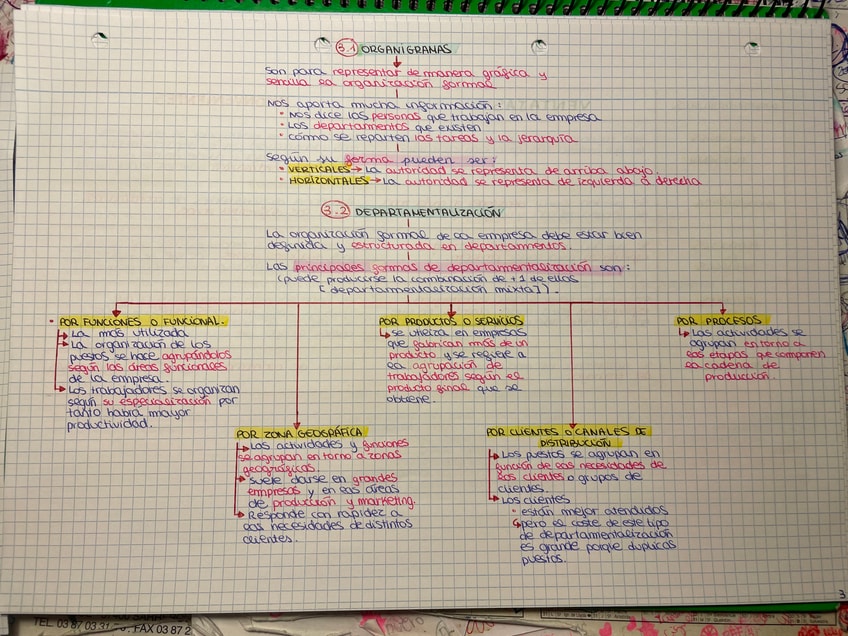 3.1 ORGANIGRAMAS
Son para representar de manera gráfica y
sencilla la organización formal
Nos aporta mucha información:
• Nos dice las personas que trabajan en la empresa
• Los departamentos que existen
• cómo se reparten las tareas y la jerarquía
Según su forma pueden ser:
• VERTICALES → La autoridad se representa de arriba abajo.
• HORIZONTALES → La autoridad se representa de izquierda a derecha
3.2 DEPARTAMENTALIZACIÓN
La organización formal de la empresa debe estar bien
definida y estructurada en departamentos.
Las principales formas de departamentalización son:
(puede producirse la combinación de +1 de ellas
[departamentalización mixta]).
• POR FUNCIONES O FUNCIONAL.
La más utilizada
La organización de los
puestos se hace agrupándolos
según las áreas funcionales
de la empresa.
Los trabajadores se organizan
según su especialización por
tanto habrá mayor
productividad.
POR ZONA GEOGRÁFICA
Las actividades y funciones
se agrupan en torno a zonas
geográficas.
Suele darse en grandes
empresas y en las áreas
de producción y marketing.
Responde con rapidez a
las necesidades de distintos
clientes.
POR PRODUCTOS O SERVICIOS
Se utiliza en empresas
que fabrican más de un
producto y se refiere a
la agrupación de
trabajadores según el
producto final que se
obtiene.
POR CLIENTES O CANALES DE
DISTRIBUCIÓN
Los puestos se agrupan en
función de las necesidades de
los clientes o grupos de
clientes
Los clientes
• están mejor atendidos
pero el coste de este tipo
de departamentalización
es grande porque duplicas
puestos.
POR PROCESOS
Las actividades se
agrupan en torno a
las etapas que componen
la cadena de
producción
3
TEL 03 87 03 31
FAX 03 87 2